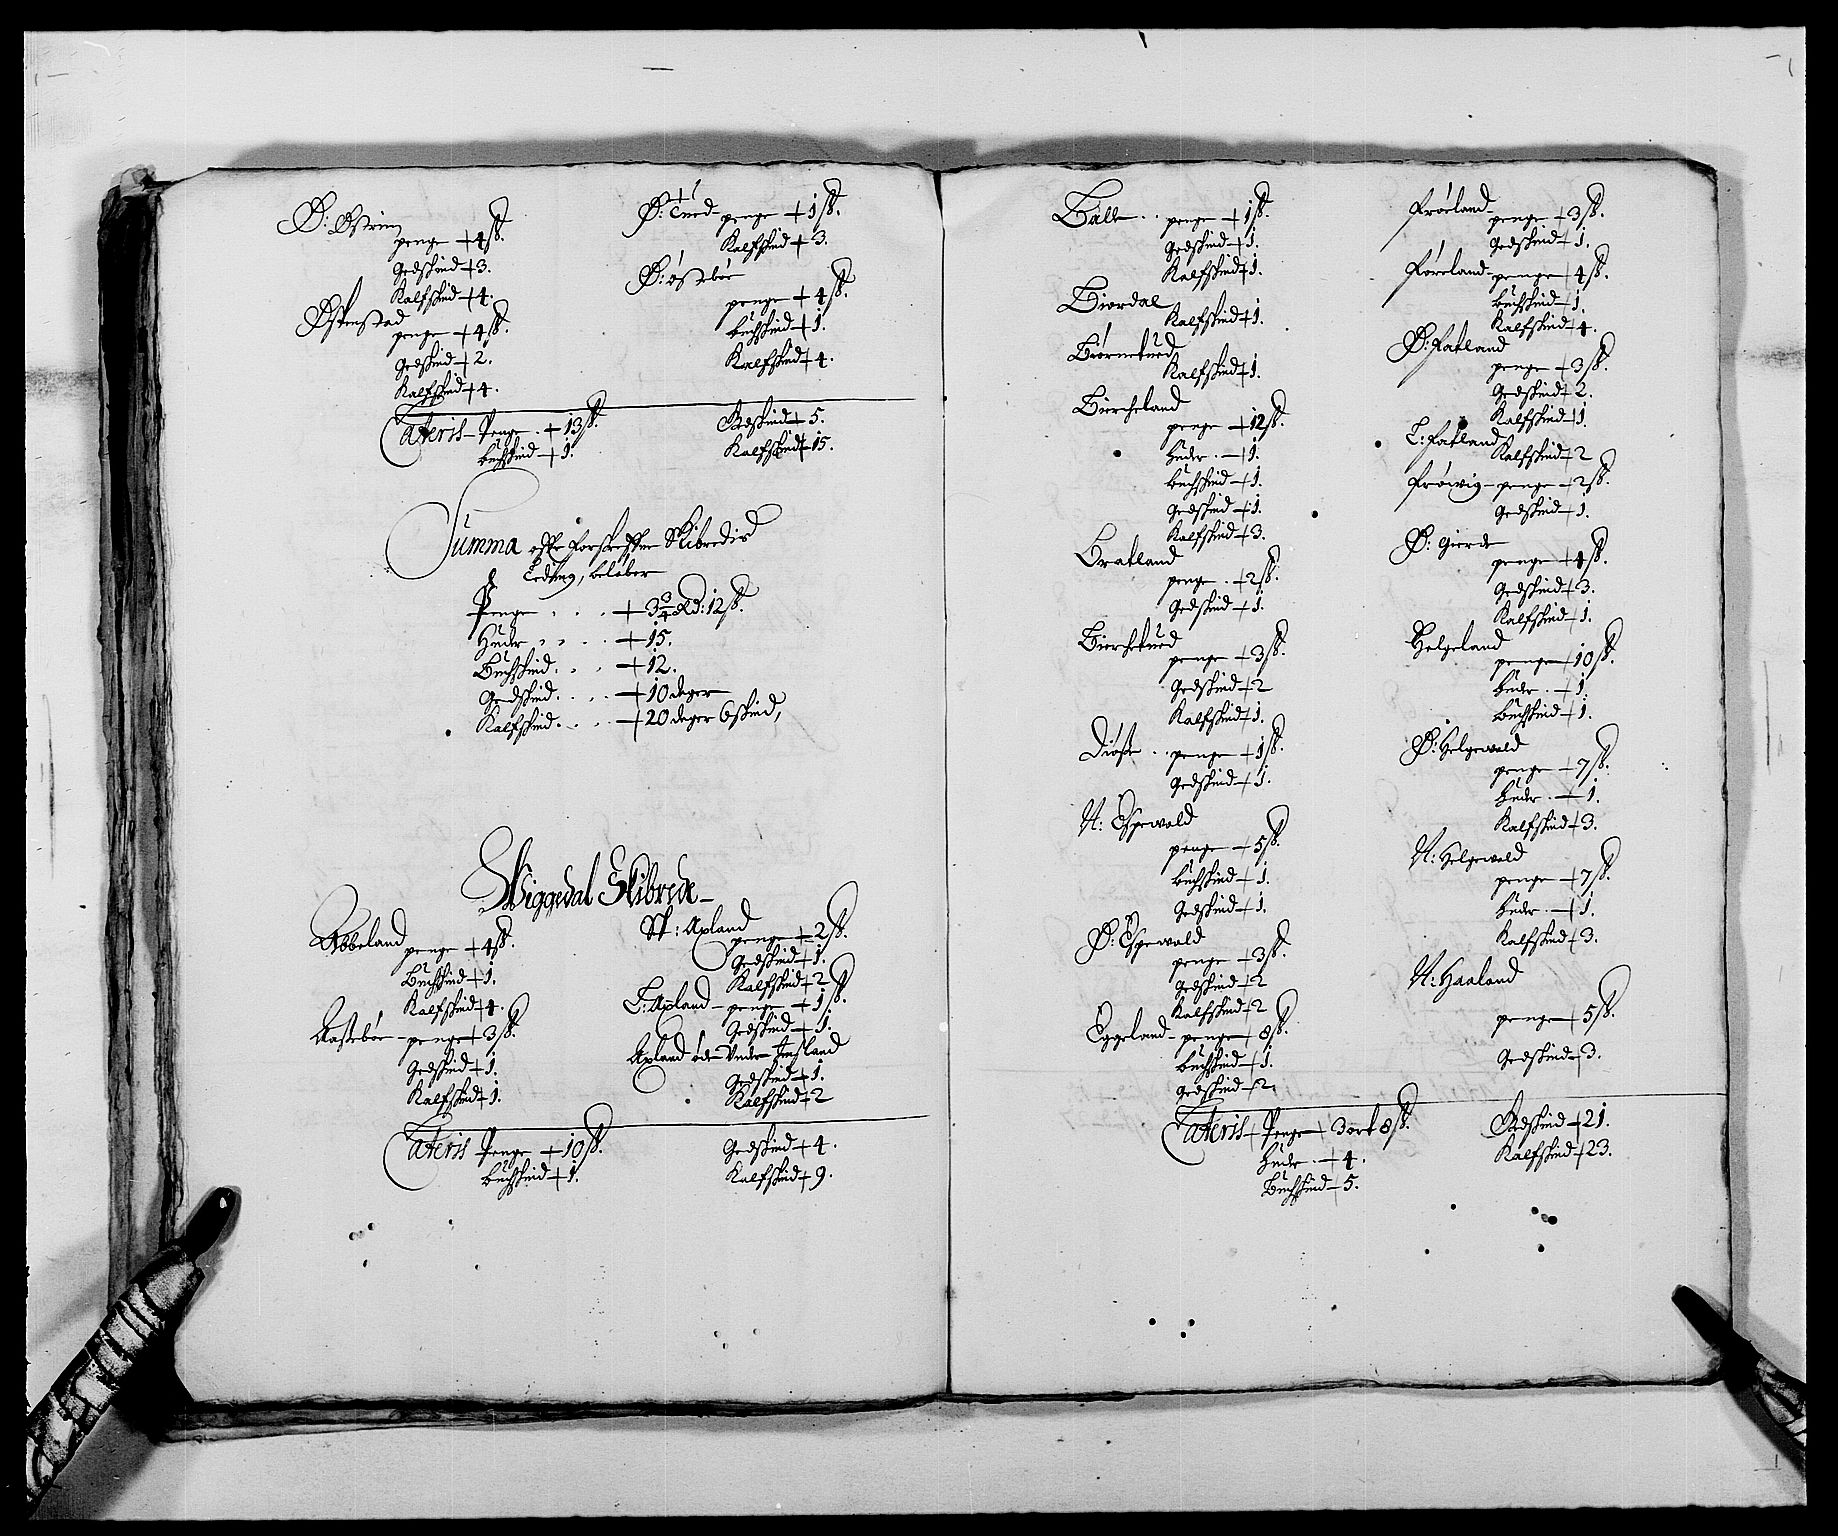 Ø: Østrim
penge + 4 ß.
Gedskind + 3.
Kalfskind + 4.
Østenstad
penge + 4 ß.
Gedskind + 2.
Kalfskind + 4.
Ø: Tued penge + 1 ß.
Kalfskind + 3.
Ø: østebøe
penge + 4 ß.
Buchskind + 1.
Kalfskind + 4.
Lateris Penge + 13 ß.
Buchskind + 1.
Gedskind + 5.
Kalfskind + 15.
Summa offr Forskreffne Skibredis
Leding, beløber
Penge + 3 3/4 Rd: 12 ß.
Huder + 15.
Buchskind + 12.
Gedskind + 10 deger
Kalfskind + 20 deger 6 skind,
Wiggedal Skibrede
Abbeland penge + 4 ß.
Buchskind + 1.
Kalfskind + 4.
Aastebøe penge + 3 ß.
Gedskind + 1.
Kalfskind + 1.
St: Axland
penge + 2 ß.
Gedskind + 1.
Kalfskind + 2
L: Axland penge + 1 ß.
Gedskind + 1.
Axland øde Under Jnsland
Gedskind + 1.
Kalfskind + 2
Lateris Penge + 10 ß.
Buchskind + 1.
Gedskind + 4.
Kalfskind + 9.
Bålle penge + 1 ß.
Gedskind + 1.
Kalfskind + 1.
Biordal
Kalfskind + 1.
Biørnetued
Kalfskind + 1.
Biercheland
penge + 12 ß.
Huder + 1.
Buchskind + 1.
Gedskind + 1.
Kalfskind + 3.
Bratland
penge + 2 ß.
Gedskind + 1.
Bierchetued
penge + 3 ß.
Gedskind + 2
Kalfskind + 1.
Diøste penge + 1 ß.
Gedskind + 1.
N: Espevold
penge + 5 ß.
Buchskind + 1.
Gedskind + 1.
Ø: Espevold
penge + 3 ß.
Gedskind + 2
Kalfskind + 2
Eggeland penge + 8 ß.
Buchskind + 1.
Gedskind + 2
Frøeland
penge + 3 ß.
Gedskind + 1.
Føreland penge + 4 ß.
Buchskind + 1.
Kalfskind + 4.
Ø: Fatland
penge + 3 ß.
Gedskind + 2.
Kalfskind + 1.
L: Fatland
Kalfskind + 2
Frøwig penge + 2 ß.
Gedskind + 1.
Ø: Gierde
penge + 4 ß.
Gedskind + 3.
Kalfskind + 1.
Helgeland
penge + 10 ß.
Huder + 1.
Buchskind + 1.
Ø: Helgevold
penge + 7 ß.
Huder + 1.
Kalfskind + 3.
N: Helgevold
penge + 7 ß.
Huder + 1.
Kalfskind + 3.
N: Haaland
penge + 5 ß.
Gedskind + 3.
Lateris Penge + 3 ort 8 ß.
Huder + 4.
Buchskind + 5.
Gedskind + 21.
Kalfskind + 23.